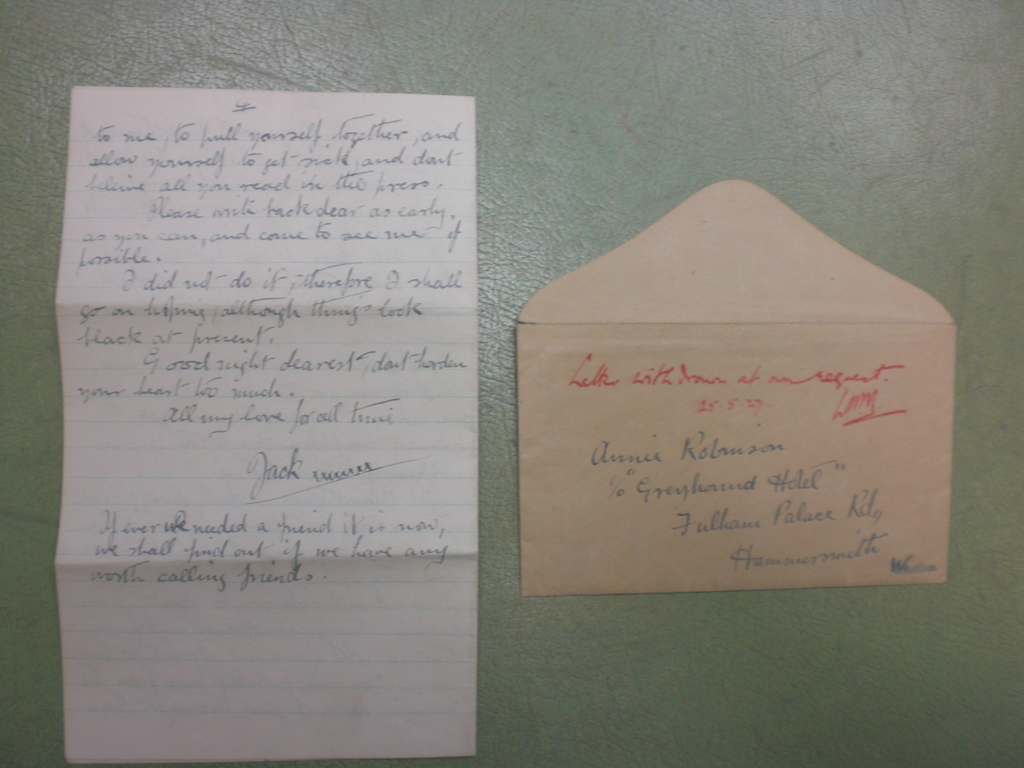 4
to me, to pull yourself together, and
allow yourself to get sick, and dont
beleive all you read in the press.
Please write back dear as early,
as you can, and come to see me if
possible.
I did not do it, therefore I shall
go on hoping, although things look
black at present.
Good night dearest, dont harden
your heart too much.
All my love for all time
Jack xxxxxxx
If ever we needed a friend it is now,
we shall find out if we have any
worth calling friends.
Letter withdrawn at own request.
25.5.27.
Annie Robinson
c/o "Greyhound Hotel"
Fulham Palace Rd,
Hammersmith
W6